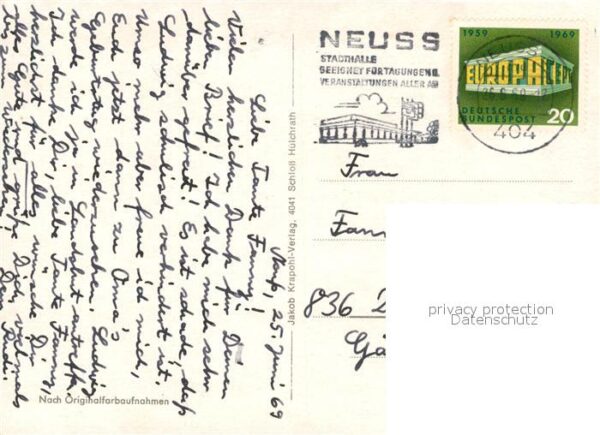 Neuß, 25. Juni 69
Liebe Tante Fanny!
Vielen herzlichen Dank für Deinen
lieben Brief! Ich habe mich sehr
darüber gefreut! Es ist schade, daß
Ludwig schulisch verhindert ist.
Umso mehr aber freue ich mich,
Euch jetzt dann zu Oma's
Ehrentag wiederzusehen. Ludwig
werde ich ja in Landshut antreffen.
Ich danke Dir, liebe Tante Fanny,
herzlichst für alles, wünsche Dir
alles Gute und grüße Dich vielmals
bis zum Weitersehen! Dein Rudi.
Nach Originalfarbaufnahmen
Jakob Krapohl-Verlag, 4041 Schloß Hülchrath
NEUSS
STADTHALLE
GEEIGNET FÜR TAGUNGEN U.
VERANSTALTUNGEN ALLER AR
1959 1969
EUROPA CEPT
DEUTSCHE
BUNDESPOST 20
404
Frau
Fann
836 D
privacy protection
Datenschutz